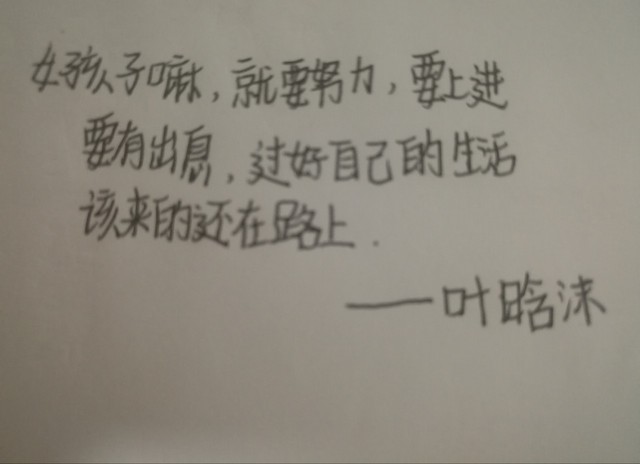 女孩子嘛，就要努力，要上进
要有出息，过好自己的生活
该来的还在路上.
——叶晗沫